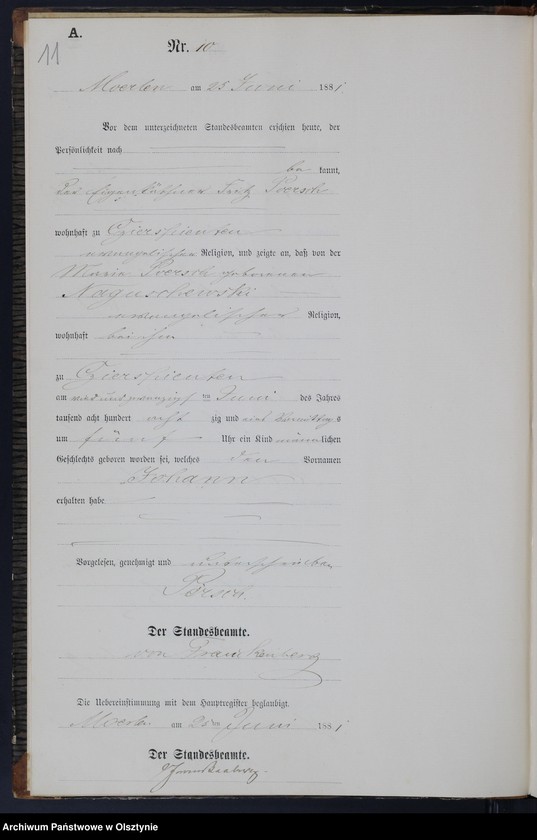 A.
11
Nr. 10
Moerlen am 25 Juni 1881
Vor dem unterzeichneten Standesbeamten erschien heute, der
Persönlichkeit nach
be kannt,
der Eigenkäthner Fritz Poersch
wohnhaft zu Gierspienten
evangelischer Religion, und zeigte an, daß von der
Maria Poersch geborenen
Naguschewski
evangelischer Religion,
wohnhaft bei ihm
zu Gierspienten
am ten Juni des Jahres
tausend acht hundert acht zig und eins Vormittags
um fünf Uhr ein Kind männlichen
Geschlechts geboren worden sei, welches den Vornamen
Johann
erhalten habe
Vorgelesen, genehmigt und unterschrieben
Der Standesbeamte.
von Frankenberg
Die Uebereinstimmung mit dem Hauptregister beglaubigt.
am 25 ten Juni 1881
Der Standesbeamte.
Archiwum Państwowe w Olsztynie